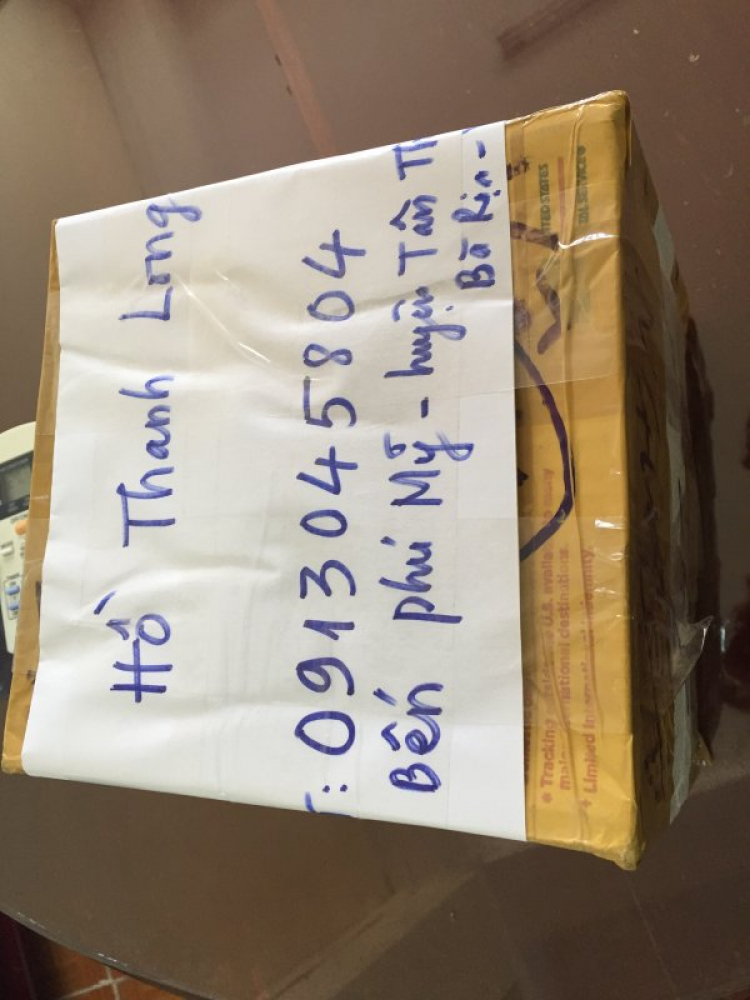 Hồ Thanh Long
: 0913045804
Bến phú Mỹ - huyện Tân Th
Bà Rịa -
UNITED STATES
POSTAL SERVICE®
Tracking
U.S.
many
national destinations.
Limited